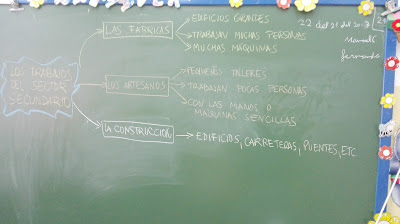 LOS TRABAJOS
DEL SECTOR
SECUNDARIO
LAS FÁBRICAS
EDIFICIOS GRANDES
TRABAJAN MUCHAS PERSONAS
MUCHAS MÁQUINAS
LOS ARTESANOS
PEQUEÑOS TALLERES
TRABAJAN POCAS PERSONAS
CON LAS MANOS O
MÁQUINAS SENCILLAS
LA CONSTRUCCIÓN
EDIFICIOS, CARRETERAS, PUENTES, ETC
22 del
Fernando